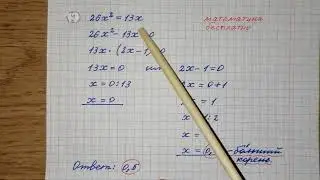 4) 26x² = 13x
математика бесплатно
26x² - 13x = 0
13x · (2x - 1) = 0
13x = 0 или 2x - 1 = 0
x = 0:13 2x = 0+1
x = 0 2x = 1
x = 1:2
x = 0,5 - больший корень
Ответ: 0,5